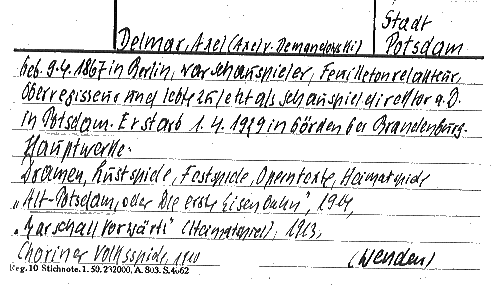 Stadt
Delmar, Axel (Axel v. Demandowski) Potsdam
geb. 9.4.1867 in Berlin, war Schauspieler, Feuilletonredakteur,
Oberregisseur und lebte zuletzt als Schauspieldirektor a.D.
in Potsdam. Er starb 1.4.1929 in Görden bei Brandenburg.
Hauptwerke:
Dramen, Lustspiele, Festspiele, Operntexte, Heimatspiele
„Alt-Potsdam, oder Die erste Eisenbahn", 1904,
„Marschall Vorwärts" (Heimatspiel), 1913,
Choriner Volksspiele, 1910
(wenden)
Reg. 10 Stichnote. 1. 50. 232000. A. 803. S. 4662